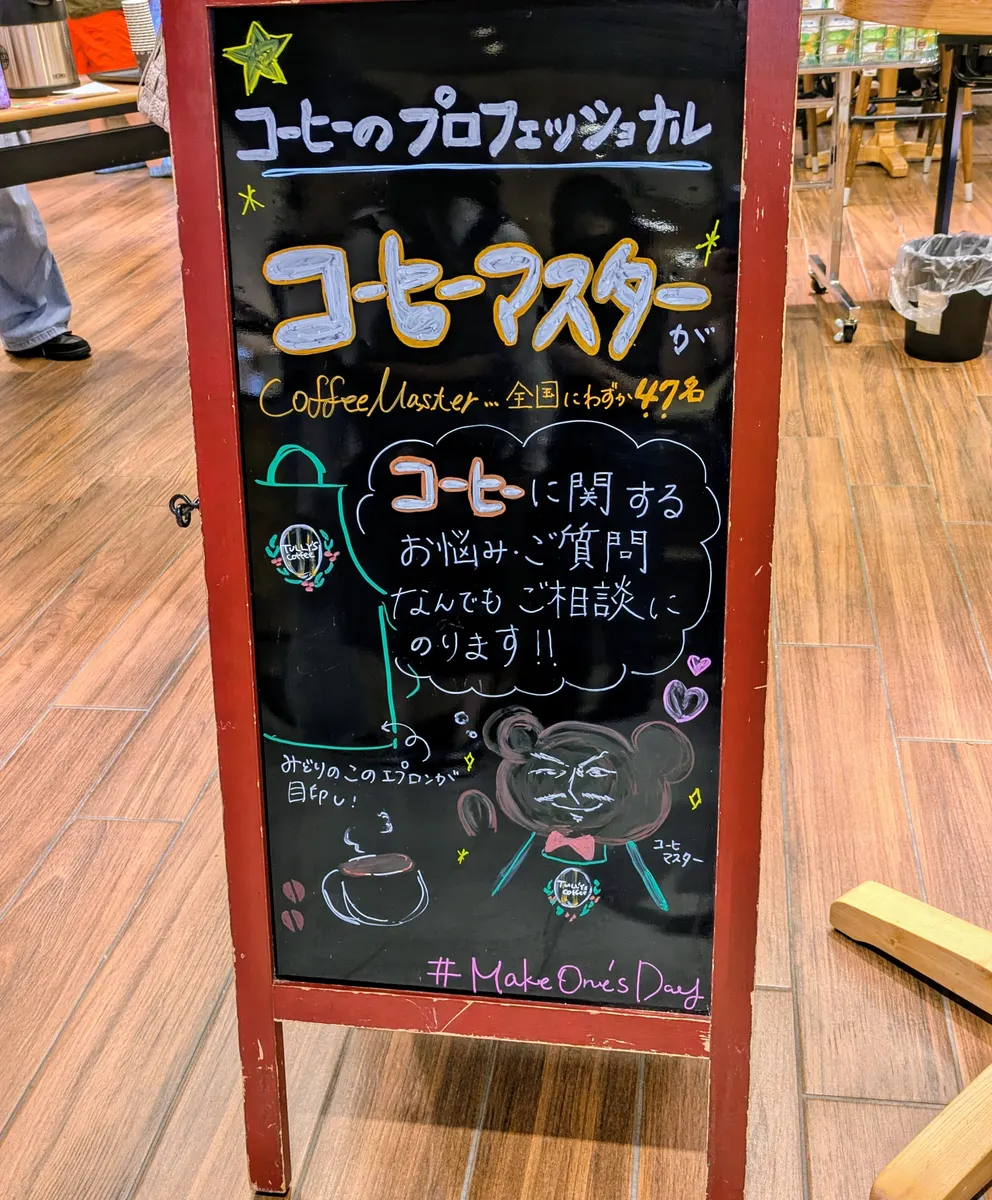 コーヒーのプロフェッショナル
コーヒーマスターが
CoffeeMaster... 全国にわずか47名
コーヒーに関する
お悩み・ご質問
なんでもご相談に
のります!!
TULLY'S
Coffee
みどりのこのエプロンが
目印し!
コーヒー
マスター
TULLY'S
COFFEE
#MakeOne'sDay